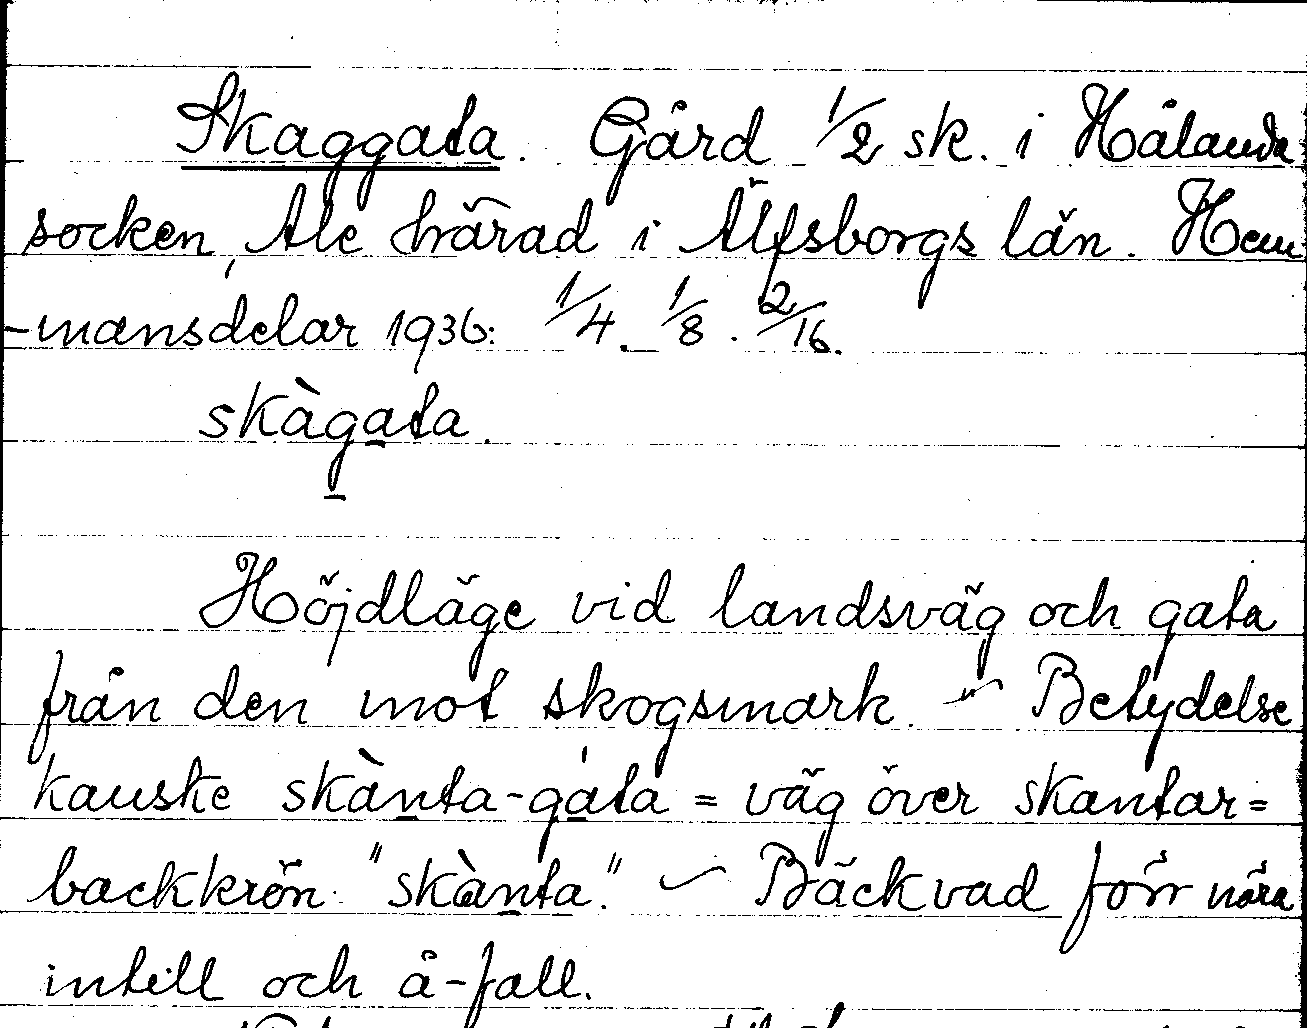 Skaggata. Gård 1/2 sk. i Hålanda
socken, Ale härad i Älfsborgs län. Hem
-mansdelar 1936: 1/4. 1/8. 2/16.
skàgata.
Höjdläge vid landsväg och gata
från den mot skogsmark. – Betydelse
kanske skànta-gáta = väg över skantar=
backkrön. "skànta." – Bäckvad förr nära
intill och å-fall.